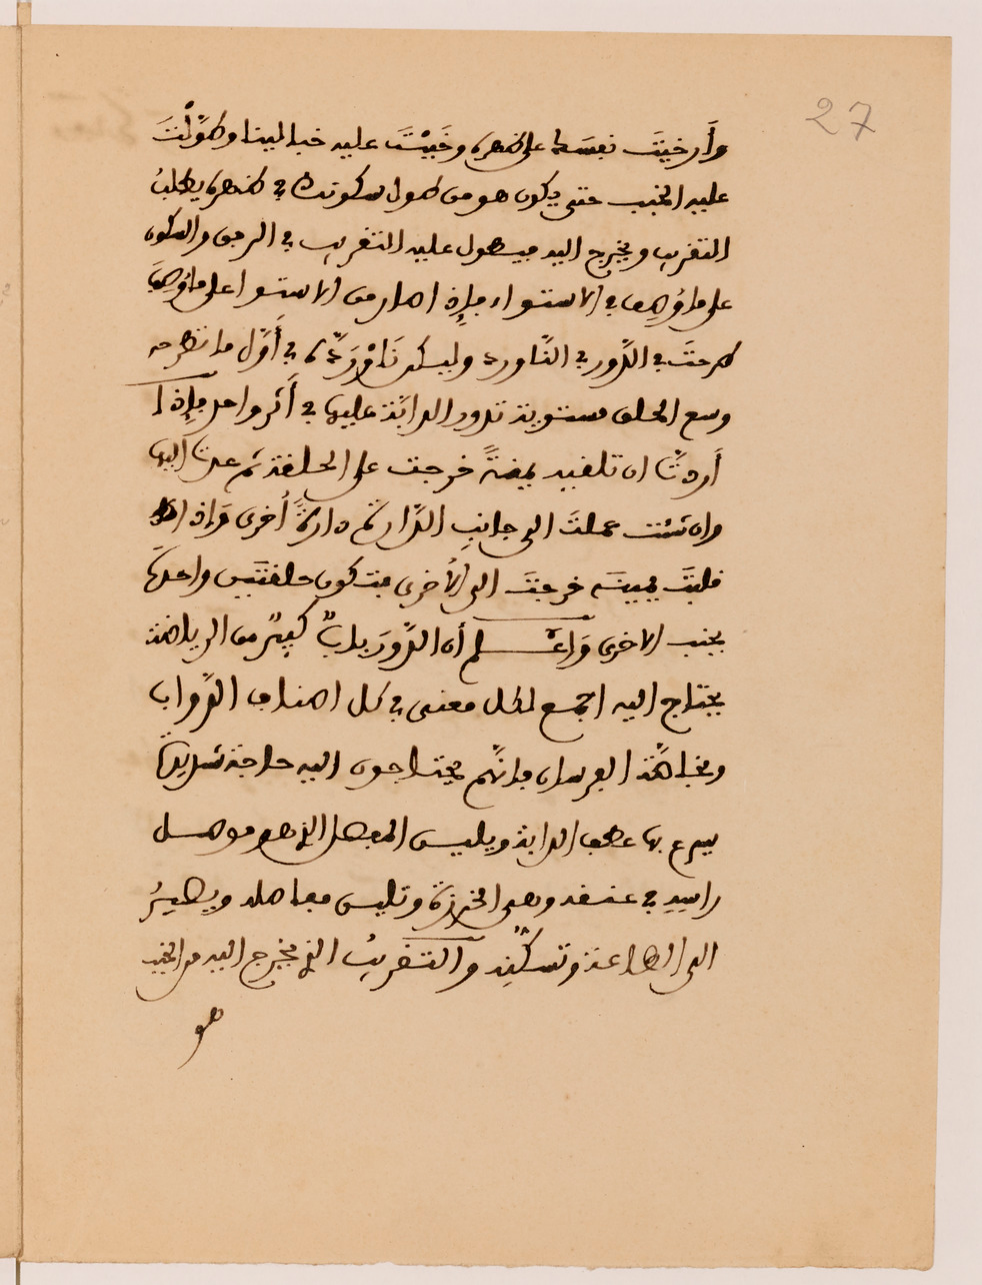 27
وأرخيت نفسك على ظهره وخببت عليه خببا لينا وطوّلت
عليه الخبب حتى يكون هو من طول سكوتك في ظهره يطلب
التقريب ويخرج اليه فيسهل عليه التقريب في الرفق والسكون
على ما وُصف في الاستواء فإذا صار من الاستوا على ما وُصف
طرحتَ في الدَّور في النَّاورد وليكن نَاوَرْدُه في أَوَّل ما تطرحه
وسع الحلق مستوية تدور الدابّة عليها في أثر واحد فإذا
أردتَ ان تقلبه يمنةً خرجت على الحلقة ثم عدتَ اليها
وان شئت عملتَ الى جانب الدَّارة دارةً أخرى وَاذا
قلبتَ يمينه خرجتَ الى الأخرى فتكون حلقتَين واحدة
بجنب الاخرى وَاعْلم أن الدَّوَر بابٌ كبيرٌ من الرياضة
يحتاج اليه اجمع لكل معنى في كل اصناف الدَّواب
وبخاصَّة الفرسان فانّهم يحتاجون اليه حاجة شديدة
يسرع بها عطف الدابة ويلين المفصل الذي هو موصل
راسِهِ في عنقه وهى الخرزة وتلين مفاصله ويصيرُ
الى الطاعة وتسكّنه والتقريبُ الذي يخرج اليه من الخبب
هو